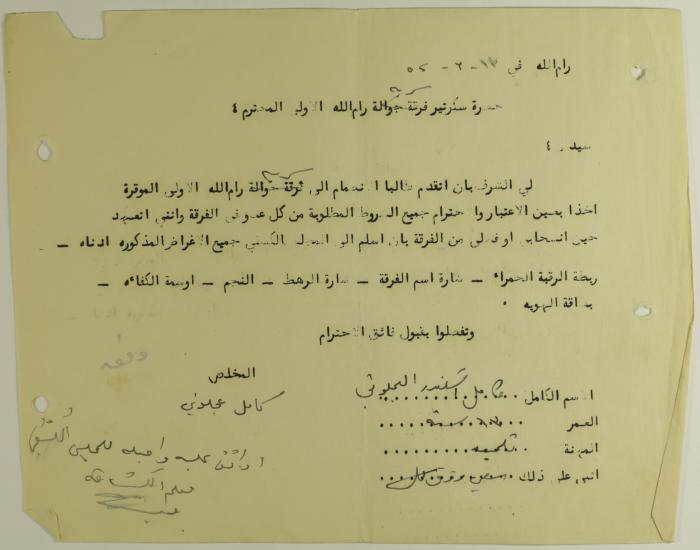 رام الله في ١٣ - ٢ - ٥٢
حضرة سكرتير فرقة جوالة رام الله الاولى المحترم ،
سيدي ،
لي الشرف بان اتقدم طالبا الانضمام الى فرقة جوالة رام الله الاولى الموقرة
اخذا بعين الاعتبار والاحترام جميع الشروط المطلوبة من كل عضو في الفرقة وانني اتعهد
حين انسحابي او فصلي من الفرقة بان اسلم الى المجلس الكشفي جميع الاغراض المذكوره ادناه –
ربطة الرقبة الحمراء – شارة اسم الفرقة – شارة الرهط – النجم – اوسمة الكفاءه –
بطاقة الهويه .
وتفضلوا بقبول فائق الاحترام
المخلص
كامل عجلوني
الاسم الكامل كامل
العمر
المهنة تلميذ
اثني على ذلك
اوافق عليه واحيله للمجلس الكشفي
معلم الكشافه